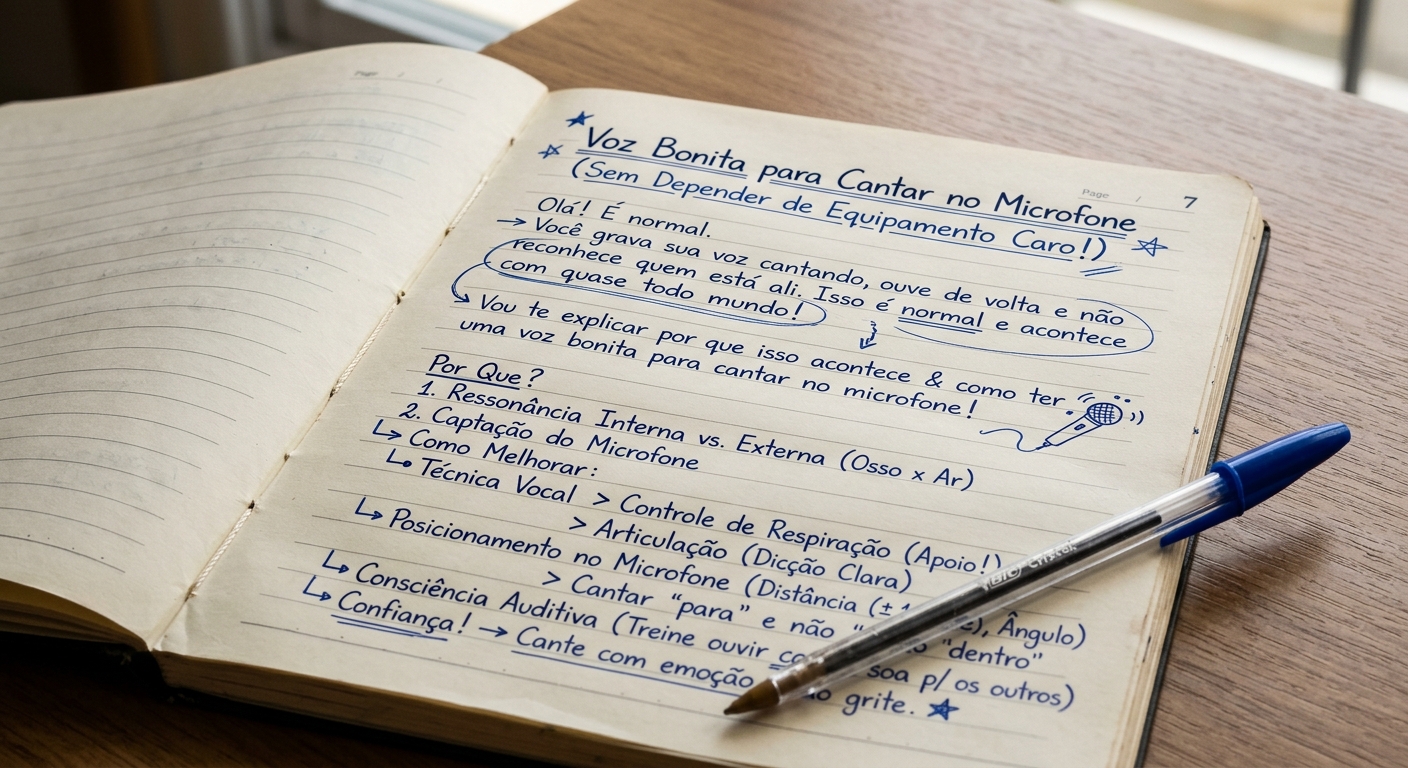 Page / /
Page / 7
Voz Bonita para Cantar no Microfone
(Sem Depender de Equipamento Caro!)
Olá! É normal.
→ Você grava sua voz cantando, ouve de volta e não
reconhece quem está ali. Isso é normal e acontece
com quase todo mundo!
Vou te explicar por que isso acontece & como ter
uma voz bonita para cantar no microfone!
Por Que?
1. Ressonância Interna vs. Externa (Osso x Ar)
2. Captação do Microfone
↳ Como Melhorar:
↳ Técnica Vocal > Controle de Respiração (Apoio!)
> Articulação (Dicção Clara)
↳ Posicionamento no Microfone (Distância (±), Ângulo)
> Cantar "para" e não "dentro"
↳ Consciência Auditiva (Treine ouvir soa p/ os outros)
↳ Confiança! → Cante com emoção grite.
BIC Cristal